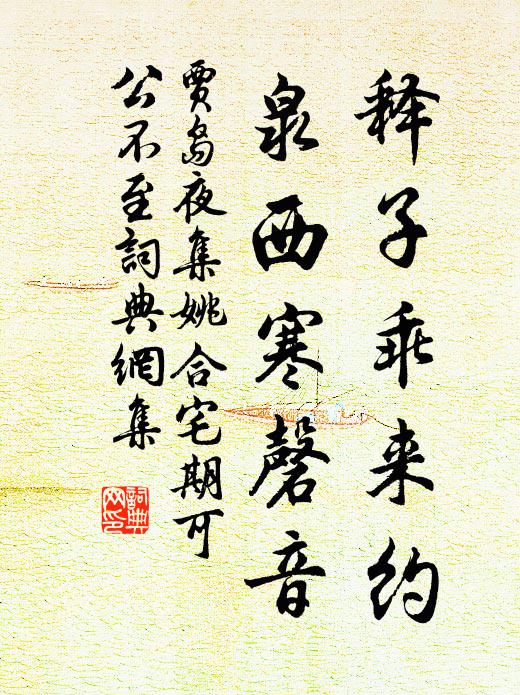 释子乖来约
泉西寒磬音
贾岛夜集姚合宅期可
公不至詞典網集
詞典
网印